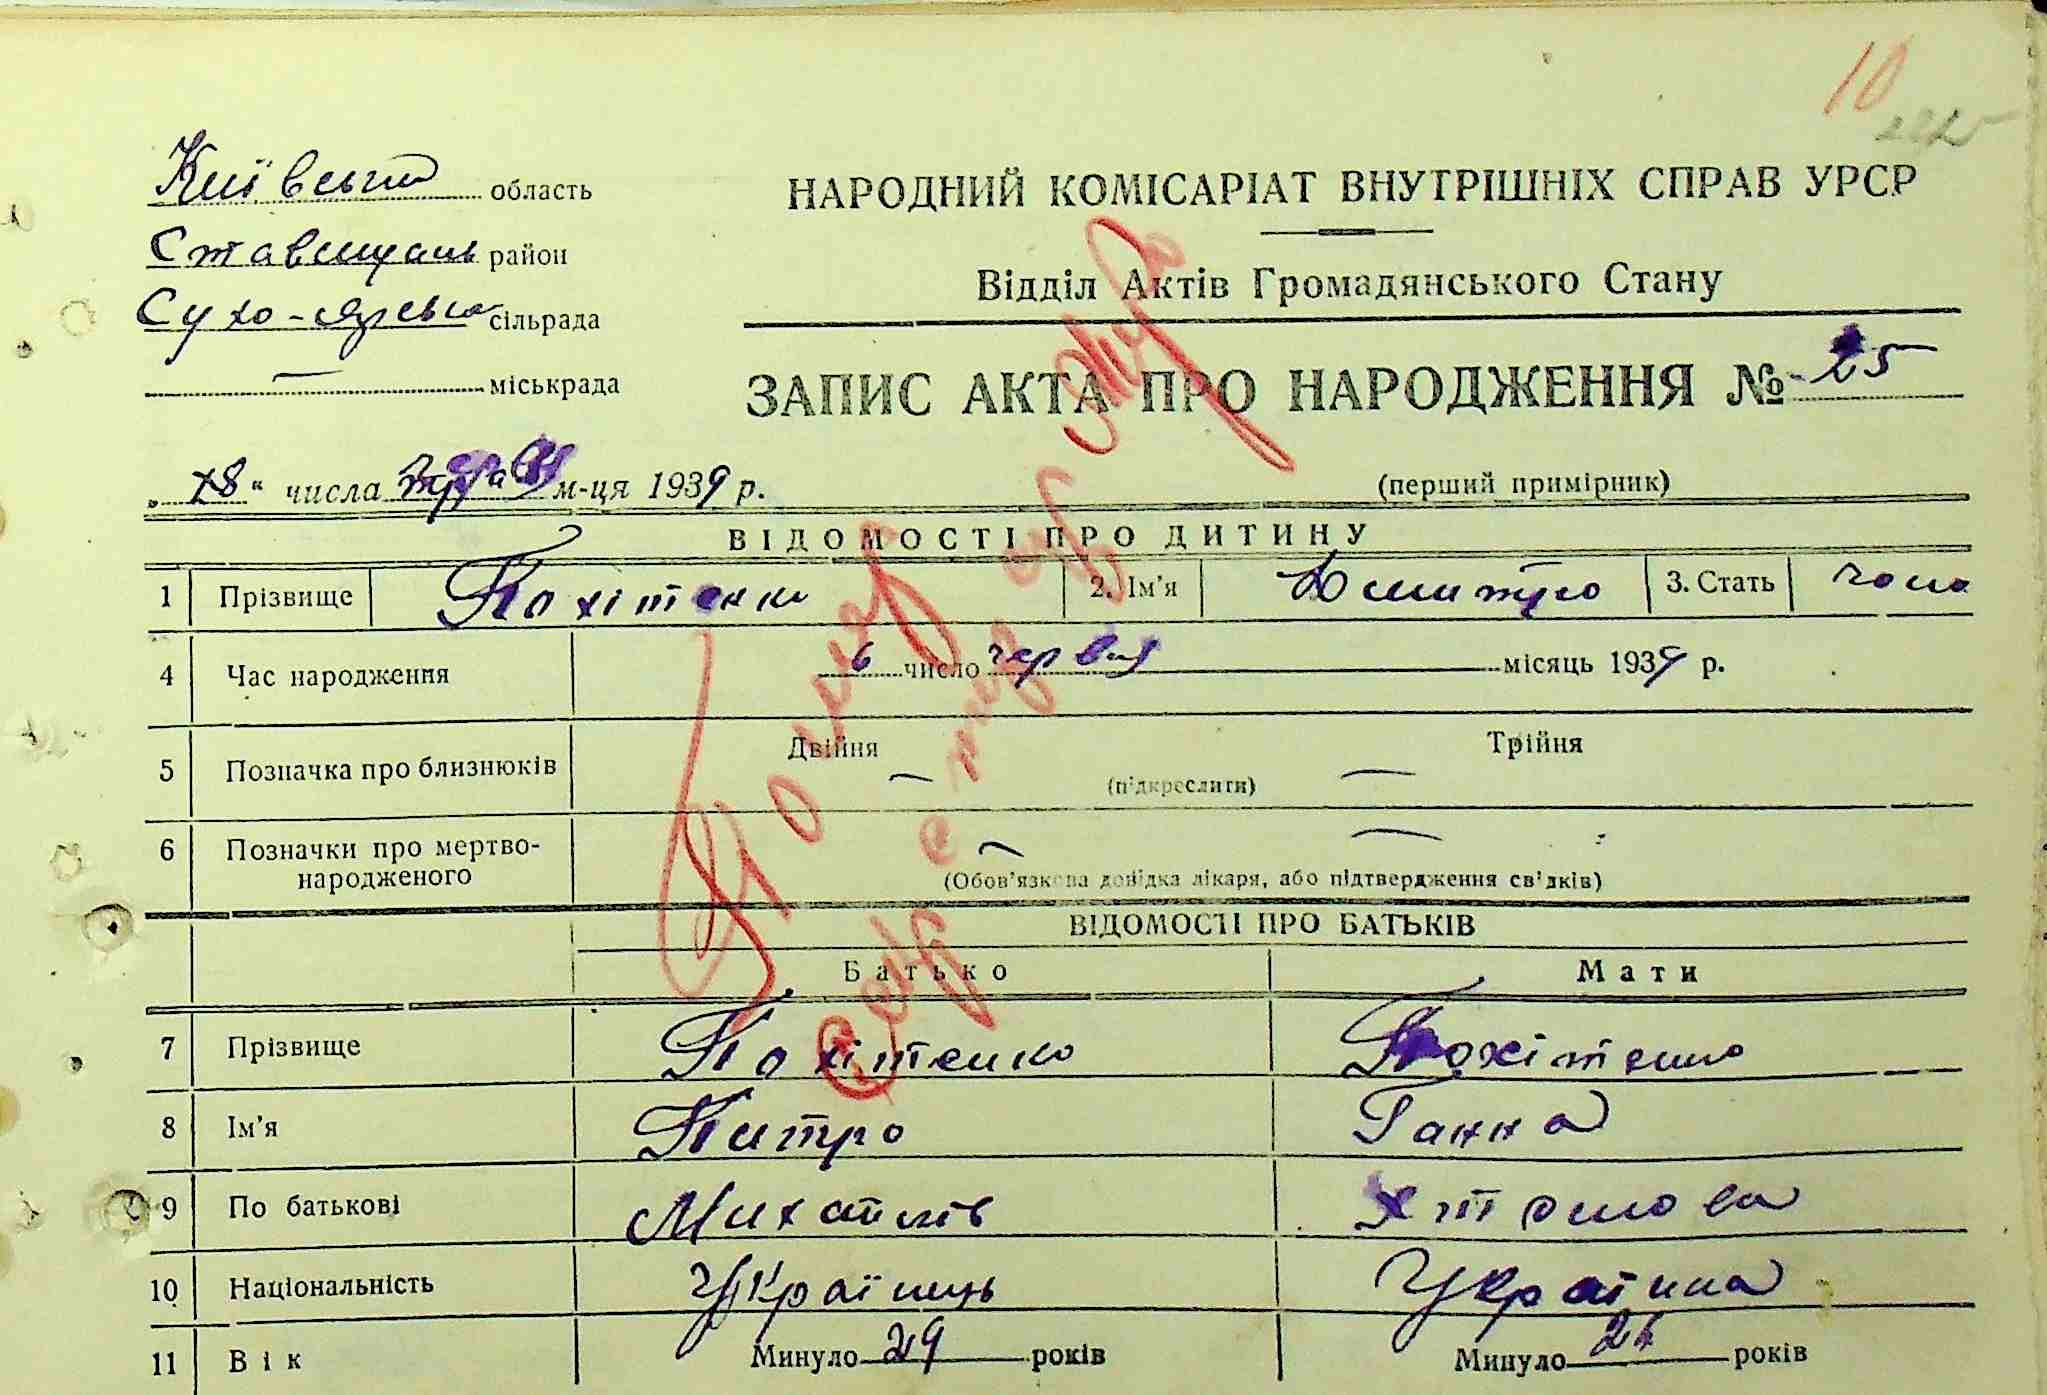 10
Київська область
Ставищан район
Сухо-Ярська сільрада
— міськрада
НАРОДНИЙ КОМІСАРІАТ ВНУТРІШНІХ СПРАВ УРСР
Відділ Актів Громадянського Стану
ЗАПИС АКТА ПРО НАРОДЖЕННЯ № 25
„ 18 “ числа м-ця 1939 р.
(перший примірник)
ВІДОМОСТІ ПРО ДИТИНУ
1 Прізвище Пахітенко 2. Ім'я Дмитро 3. Стать чол
4 Час народження 6 число червня місяць 1939 р.
5 Позначка про близнюків Двійня — (підкреслити) Трійня —
6 Позначки про мертвонародженого — —
(Обов'язкова довідка лікаря, або підтвердження свідків)
ВІДОМОСТІ ПРО БАТЬКІВ
Батько Мати
7 Прізвище Пахітенко Пахітенко
8 Ім'я Питро Ганна
9 По батькові Михайлів
10 Національність Українець Україна
11 Вік Минуло 29 років Минуло років